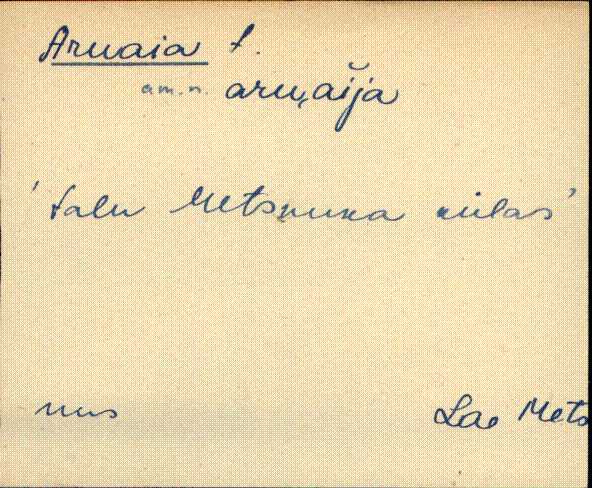 Aruaia t.
am.n. aru‚aĭja
'talu Metskuka külas'
mus
Lai Mets